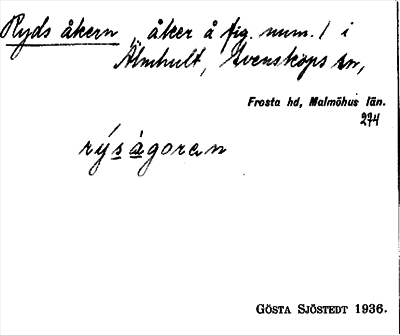 Ryds åkern, åker å fig. num. 1 i
Älmhult, Svensköps sn,
Frosta hd, Malmöhus län.
294
rýs ågoren
GÖSTA SJÖSTEDT 1936.